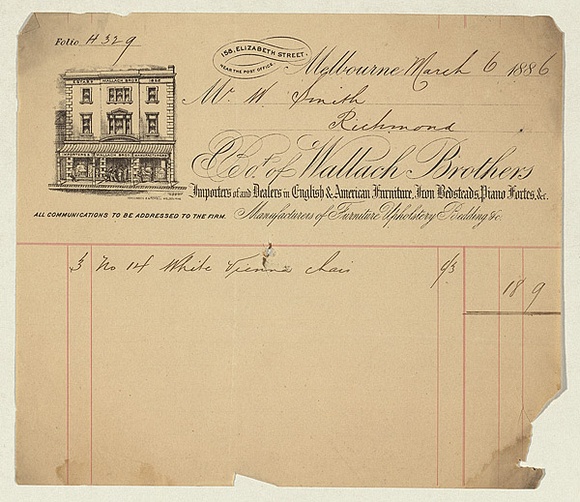 Folio H 329
158, ELIZABETH STREET,
NEAR THE POST OFFICE.
Melbourne March 6 1886
Mr. W. Smith
Richmond
Bot. of Wallach Brothers
Importers of and Dealers in English & American Furniture, Iron Bedsteads, Piano Fortes, &c.
ALL COMMUNICATIONS TO BE ADDRESSED TO THE FIRM.
Manufacturers of Furniture Upholstery Bedding &c
WALLACH BROS
3 No 14 White Vienna chairs 6/3 18 9